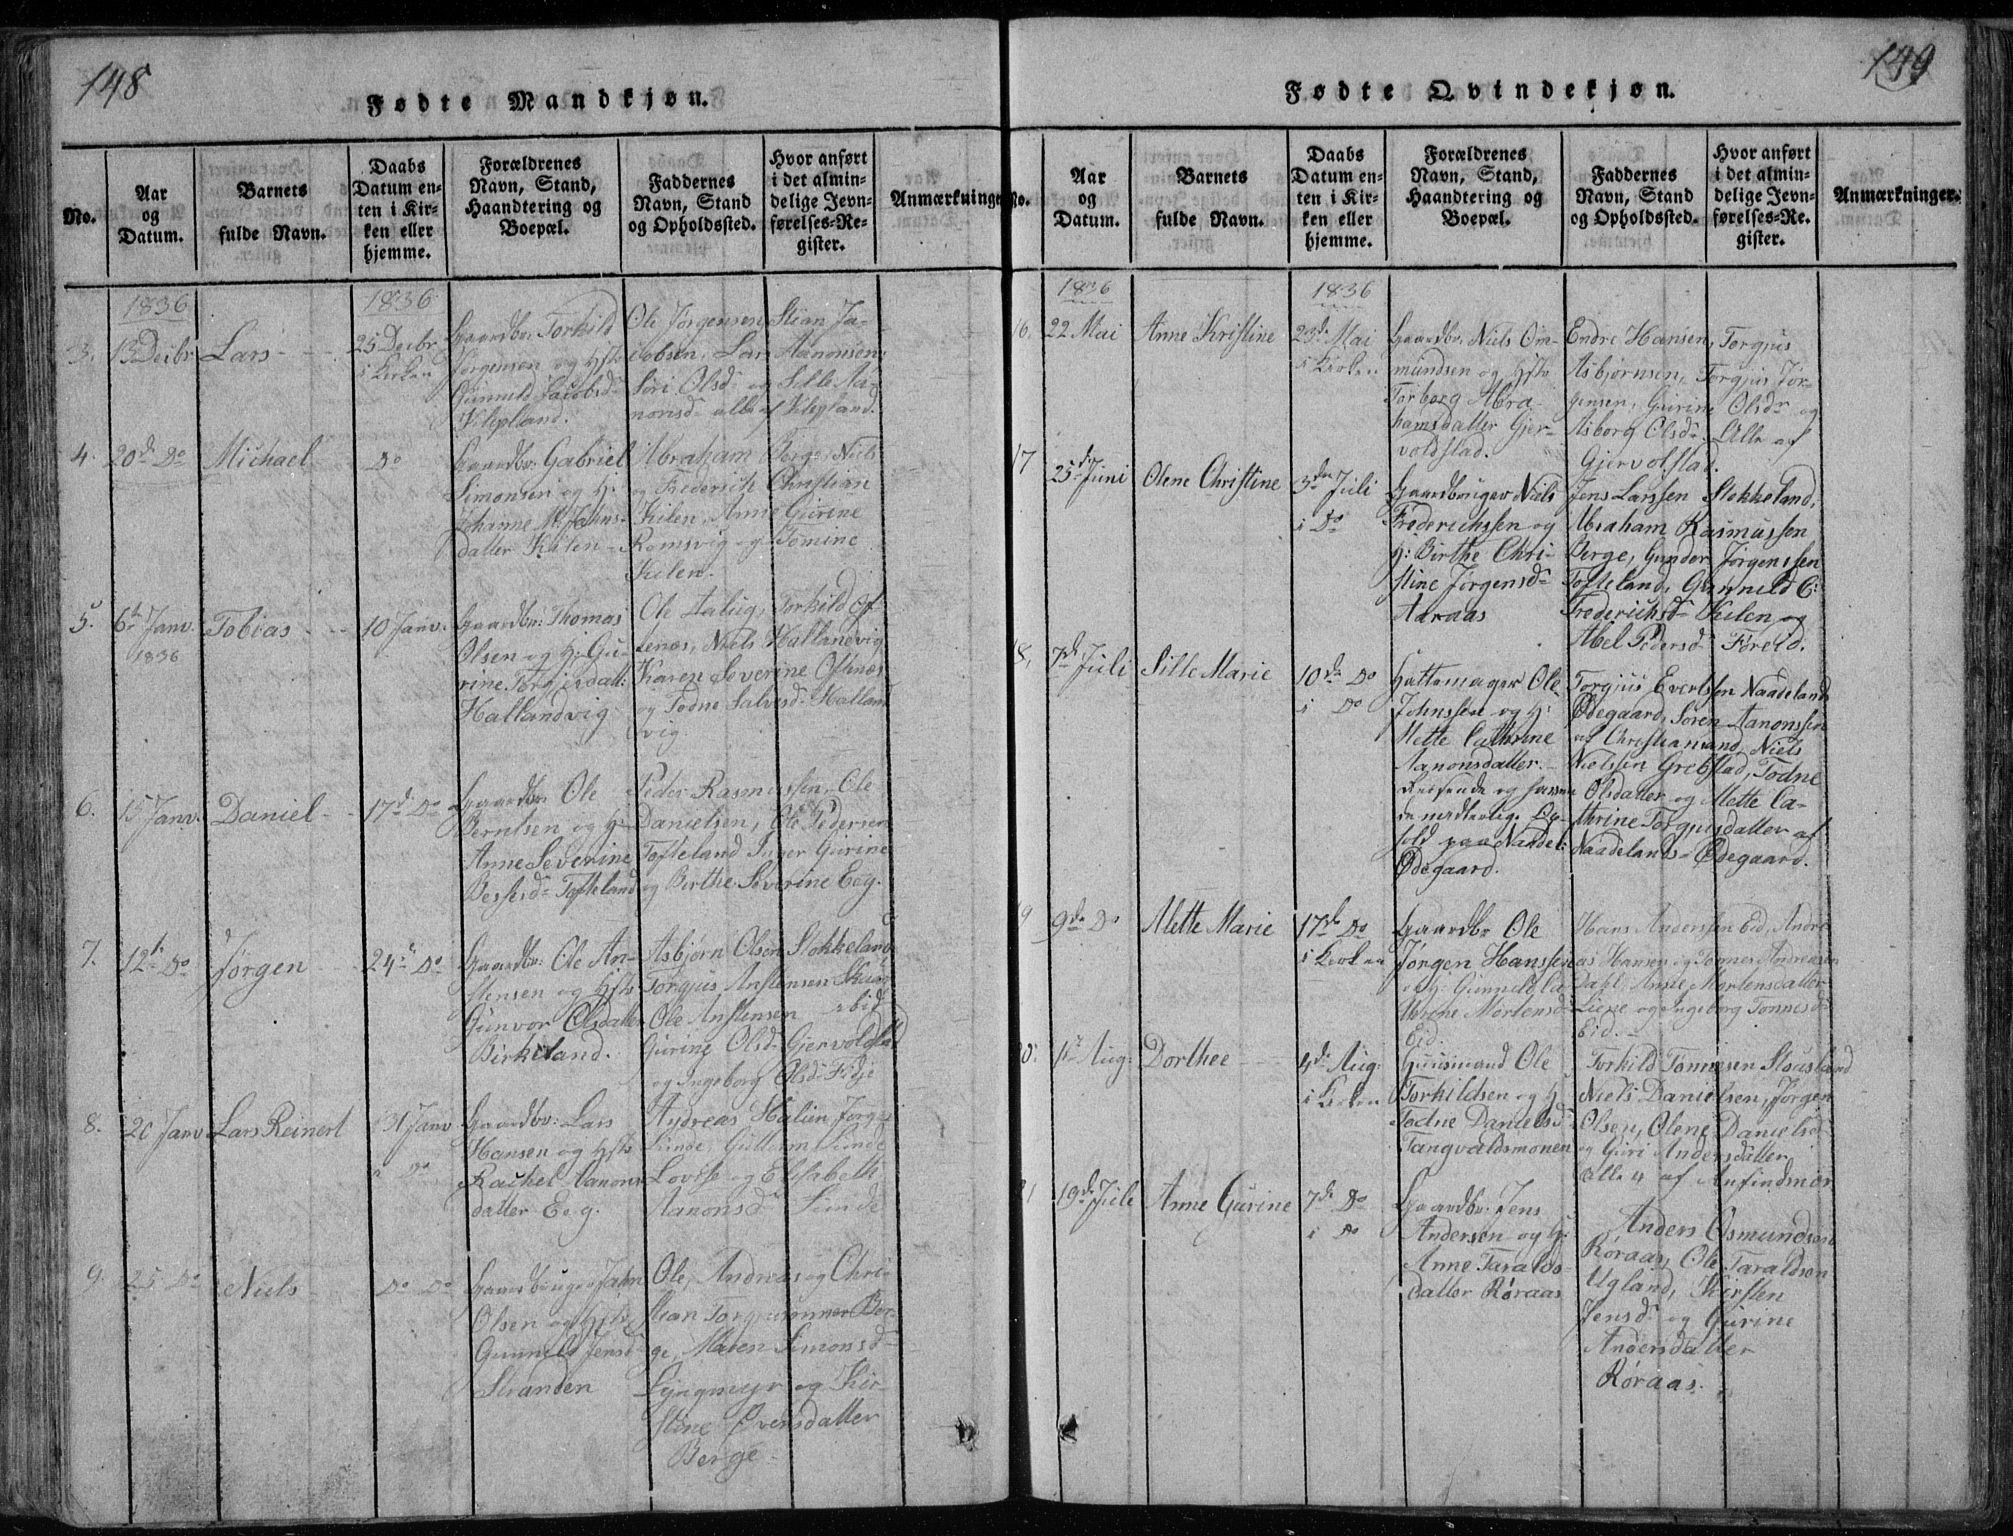 148
Fødte Mandkjøn.
No.
Aar
og
Datum.
Barnets
fulde Navn.
Daabs
Datum en-
ten i Kir-
ken eller
hjemme.
Forældrenes
Navn, Stand,
Haandtering og
Boepæl.
Faddernes
Navn, Stand
og Opholdssted.
Hvor anført
i det almin-
delige Jevn-
førelses-Re-
gister.
Anmærkninger
1836
1836
3.
Lars
25 Decbr.
i Kirken
Gaardbr. Torkild
Jørgensen og Hst
Gunnild Jacobsd
Kleplland.
Ole Jørgensen, Stian Ja-
cobsen, Lars Aanonsen,
Siri Olsd og Sille Aa-
nonsd alle af Klepland.
4.
20de Do
Michael
Do
Gaardbr. Gabriel
Simonsen og H:
Johanne M. Johns-
datter Kilen
Abraham Berge, Niels
og Frederich Christian
Kilen, Anne Gurine
Romsvig og Tomine
Kilen.
5.
6te Janv.
1836
Tobias
10 Janv.
Gaardbr: Thomas
Olsen og H: Gu-
rine Torgjersdatt:
Hallandvig
Ole Aalug, Torkild Of-
tenæs, Niels Hallandvig
Karen Severine Oftnæs
og Todne Salvesd Halland
vig.
6.
15 Janv.
Daniel
17de Do
Gaardbr Ole
Berntsen og H
Anne Severine
Tofteland
Peder Rasmussen, Ole
Danielsen, Ole Pedersen
Tofteland Inger Gurine
og Berthe Severine Eeg.
7.
12te Do
Jørgen
24de Do
Gaardbr: Ole An-
stensen og Hst
Gunvor Olsdatter
Birkeland.
Asbjørn Olsen Stokkeland
Torgjus Anstensen
Ole Anstensen
Gurine Olsd Gjervoldstad
og Ingeborg Olsd Fidje
8.
20 Janv
Lars Reinert
31 Janv
i Do
Gaardbr: Lars
Hansen og Hst
Rachel Aanons
datter Eeg.
Andreas
Lunde, Guttorm Lunde
Lovise og Elisabeth
Aanonsd Lunde
9.
25 Do
Niels
Do Do
Gaardbruger John
Olsen og Hst
Gunnild Jensd
Stranden
Ole, Andreas og Chri-
stian Torgjusønner Ber-
ge, Maren Simonsd
Lyngmyr og Kir-
stine Iversdatter
Berge
149
Fødte Qvindekjøn.
No.
Aar
og
Datum.
Barnets
fulde Navn.
Daabs
Datum en-
ten i Kir-
ken eller
hjemme.
Forældrenes
Navn, Stand,
Haandtering og
Boepæl.
Faddernes
Navn, Stand
og Opholdssted.
Hvor anført
i det almin-
delige Jevn-
førelses-Re-
gister.
Anmærkninger.
1836
1836
16.
22 Mai
Anne Kristine
23de Mai
i Kirken
Gaardbr. Niels Om-
mundsen og Hst
Torborg Abra-
hamsdatter Gjer-
voldstad.
Endre Hansen, Torgjus
Asbjørnsen, Torgjus Jør-
gensen, Gurine Olsd og
Asborg Olsd. Alle af
Gjervolstad.
17
25de Juni
Olene Christine
3de Juli
i Do
Gaardbruger Niels
Frederichssen og
H: Birthe Chri-
stine Jørgensd
Aaraas
Jens Larssen Stokkeland,
Abraham Rasmussen
Berge, Gunder Jørgenssen
Tofteland, Gunnild C:
Frederichsd Kilen, og
Abel Pedersd Føreid.
8.
7de Juli
Sille Marie
10de Do
i Do
Hattemager Ole
Johnssen og H:
Mette Cathrine
Aanonsdatter.
Ødegaard.
Torgjus Evertsen Naadelands
Ødegaard, Søren Aanonssen
af Christiansand, Niels
Nielssen Grebstad, Todne
Olsdatter og Mette Ca-
thrine Torgjusdatter af
Naadelands-Ødegaard.
19
9de Do
Mette Marie
17de Do
i Kirken
Gaardbr Ole
Jørgen Hanssen
og H: Gunnild Ca
thrine Mortensd
Eid.
Hans Anderssen Eid, Andre
as Hansen og Tønnes Andreasen
Dahl, Anne Mortensdatter
Liene og Ingeborg Tønnesd
Eid.
20.
1te Aug:
Dorthee
4de Aug:
i Kirken
Huusmand Ole
Torkildsen og H
Todne Danielsd
Tangvaldsmonen
Torkild Tønnesen Stousland
Niels Danielsen, Jørgen
Olsen, Olene Danielsd
og Guri Andersdatter
alle 4 af
21
19de Juli
Anne Gurine
7de Do
i Do
Gaardbr. Jens
Andersen og H:
Anne Taralds-
datter Røraas
Anders Osmundsen
Røraas, Ole Taraldsen
Ugland, Kirsten
Jensd og Gurine
Andersdatter
Røraas.